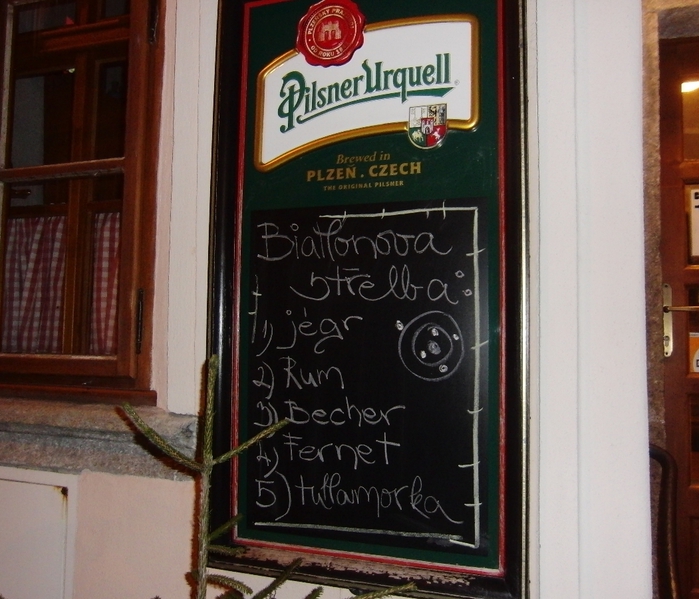 PLZEŇSKÝ PRAZDROJ
OD ROKU 1842
Pilsner Urquell
Brewed in
PLZEN . CZECH
THE ORIGINAL PILSNER
Biatlonova
střelba:
1) jégr
2) Rum
3) Becher
4) Fernet
5) tullamorka